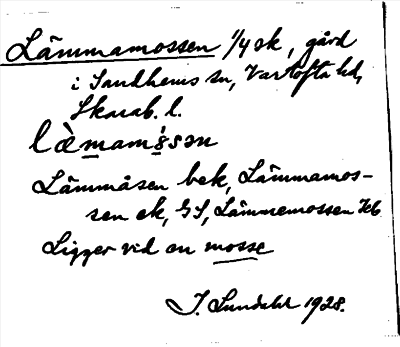 Lämmamossen 1/4 sk, gård
i Sandhems sn, Vartofta hd,
Skarab. l.
Lämmåsen bek, Lämmamos-
sen ek, GS, Lämmemossen
Ligger vid en mosse
J. Sundahl 1928.